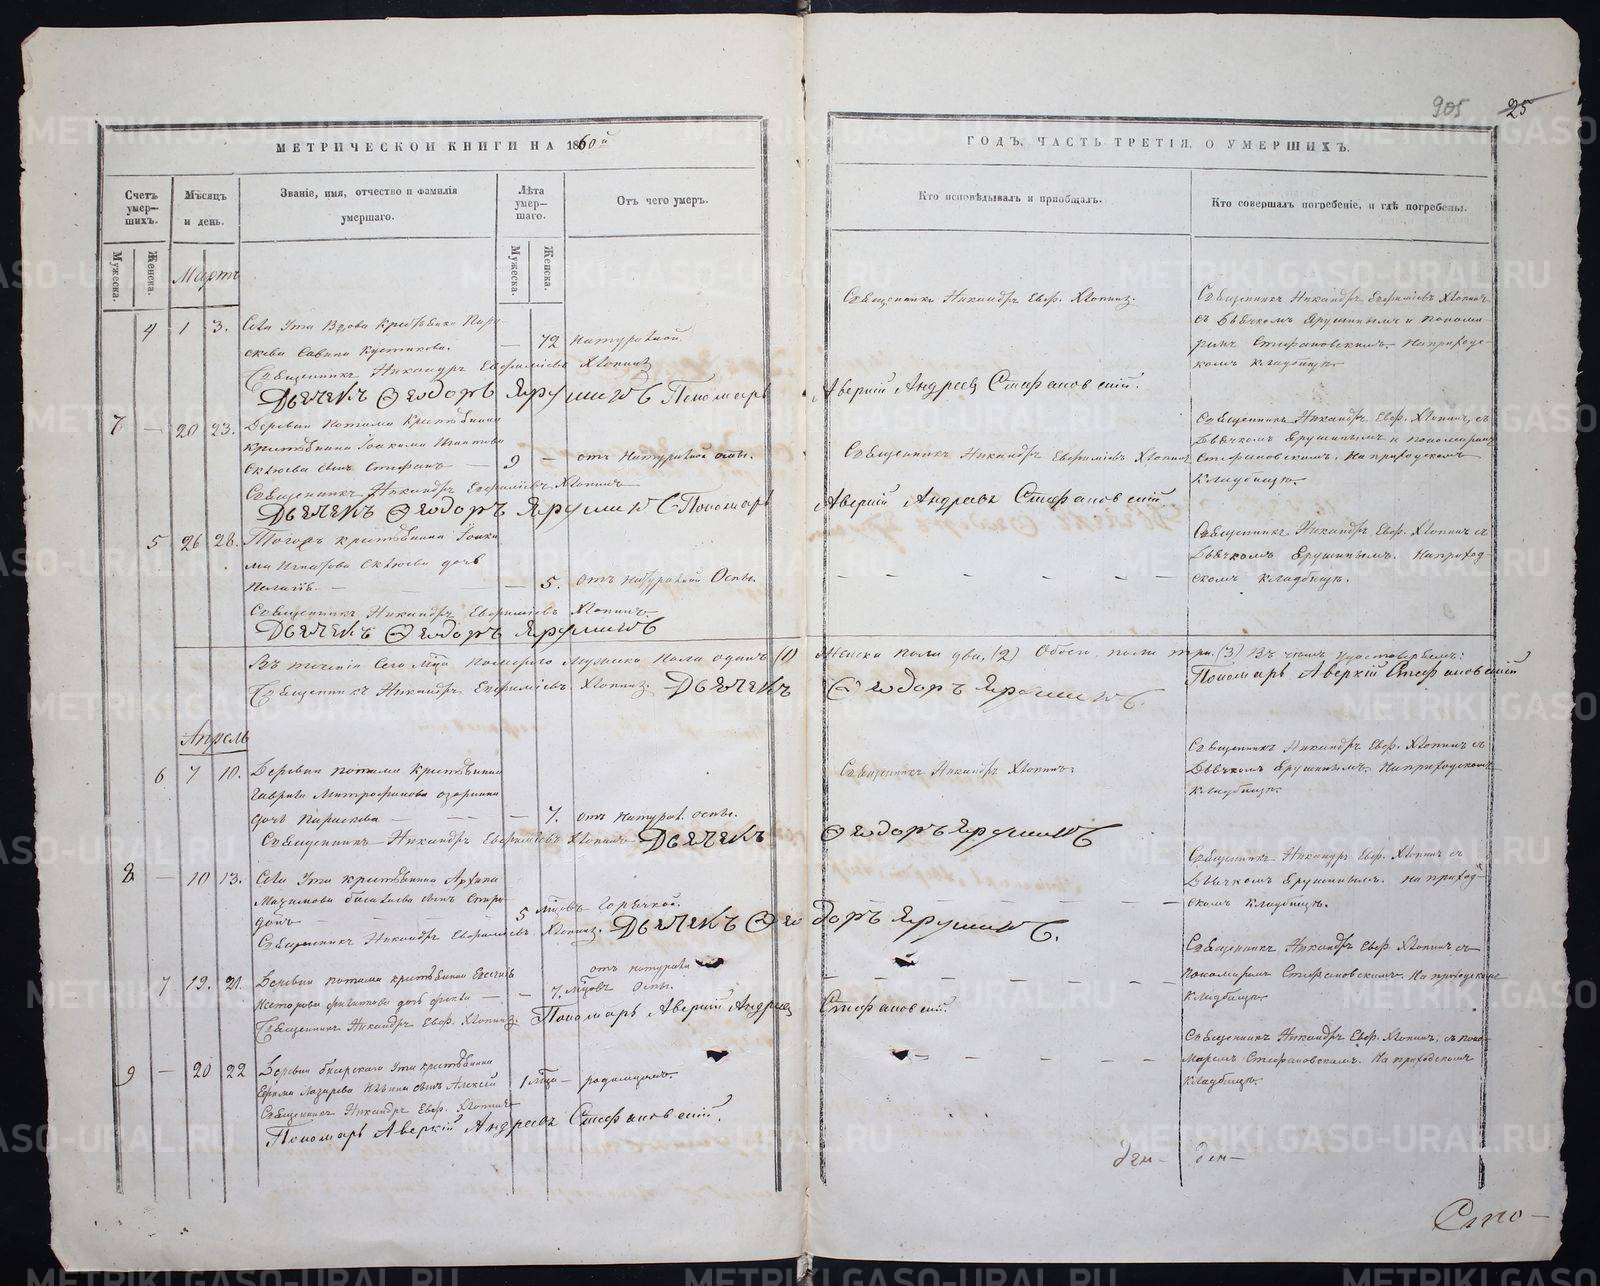 905 25
МЕТРИЧЕСКОЙ КНИГИ НА 1860й
ГОДЪ, ЧАСТЬ ТРЕТІЯ, О УМЕРШИХЪ.
Счетъ умер-
шихъ.
Мѣсяцъ
и день.
Званіе, имя, отчество и фамилія
умершаго.
Лѣта
умер-
шаго.
Отъ чего умеръ.
Кто исповѣдывалъ и пріобщалъ.
Кто совершалъ погребеніе, и гдѣ погребены.
Мужеска.
Женска.
Мужеска.
Женска.
Мартъ
4 1 3. Села Ута Вдова Крестьянка Пара-
скева Саввина
72 натуральной.
Священникъ Никандръ Евфиміевъ Хлопинъ
Дьячекъ Ѳеодоръ Ярушинъ Пономарь Аверкій Андреевъ Стефановскій.
Священникъ Никандръ Евф. Хлопинъ.
Священникъ Никандръ Евфиміевъ Хлопинъ
съ Дьячкомъ Ярушинымъ и Понома-
ремъ Стефановскимъ. На приход-
скомъ кладбищѣ.
7 20 23. Деревни Потама
Крестьянина Іоакима Игнатова
сынъ Стефанъ 9 отъ натуральной оспы.
Священникъ Никандръ Евфиміевъ Хлопинъ
Дьячекъ Ѳеодоръ Ярушинъ Пономарь Аверкій Андреевъ Стефановскій
Священникъ Никандръ Евфиміевъ Хлопинъ
Священникъ Никандръ Евф. Хлопинъ, съ
Дьячкомъ Ярушинымъ и пономаремъ
Стефановскимъ. На приходскомъ
кладбищѣ.
5 26 28. Тогожъ крестьянина Іоаки-
ма Игнатова дочь
Пелагія. 5. отъ натуральной Оспы.
Священникъ Никандръ Евфиміевъ Хлопинъ
Дьячекъ Ѳеодоръ Ярушинъ
Священникъ Никандръ Евф. Хлопинъ съ
Дьячкомъ Ярушинымъ. На приход-
скомъ кладбищѣ.
Въ теченіи сего Мѣсяца померло Мужеска пола одинъ (1) Женска пола два, (2) Обоего пола три. (3) Въ чемъ удостовѣряемъ:
Священникъ Никандръ Евфиміевъ Хлопинъ Дьячекъ Ѳеодоръ Ярушинъ. Пономарь Аверкій Стефановскій
Апрель
6 7 10. Деревни потама крестьянина
Гаврила Митрофанова
дочь Параскева 7. отъ натурал. оспы.
Священникъ Никандръ Евфиміевъ Хлопинъ Дьячекъ Ѳеодоръ Ярушинъ
Священникъ Никандръ Хлопинъ.
Священникъ Никандръ Евф. Хлопинъ съ
Дьячкомъ Ярушинымъ. На приходскомъ
кладбищѣ.
8 10 13. Села Ута крестьянина Архипа
Максимова сынъ Спири-
донъ 5 мѣсяцовъ Горячкой.
Священникъ Никандръ Евфиміевъ Хлопинъ. Дьячекъ Ѳеодоръ Ярушинъ.
Священникъ Никандръ Евф. Хлопинъ съ
Дьячкомъ Ярушинымъ. на приход-
скомъ кладбищѣ.
7 19. 21. Деревни потама крестьянина
Нестерова дочь 7. мѣсяцовъ отъ натурал.
Оспы.
Священникъ Никандръ Евф. Хлопинъ. Пономарь Аверкій Андреевъ Стефановскій.
Священникъ Никандръ Евф. Хлопинъ съ
Пономаремъ Стефановскимъ. На приходскомъ
кладбищѣ.
9 20 22 Деревни крестьянина
Ефима Лазарева сынъ Алексій 1 мѣсяца родимцомъ.
Священникъ Никандръ Евф. Хлопинъ
Пономарь Аверкій Андреевъ Стефановскій.
Священникъ Никандръ Евф. Хлопинъ, съ поно-
маремъ Стефановскимъ. На приходскомъ
кладбищѣ.
METRIKI.GASO-URAL.RU